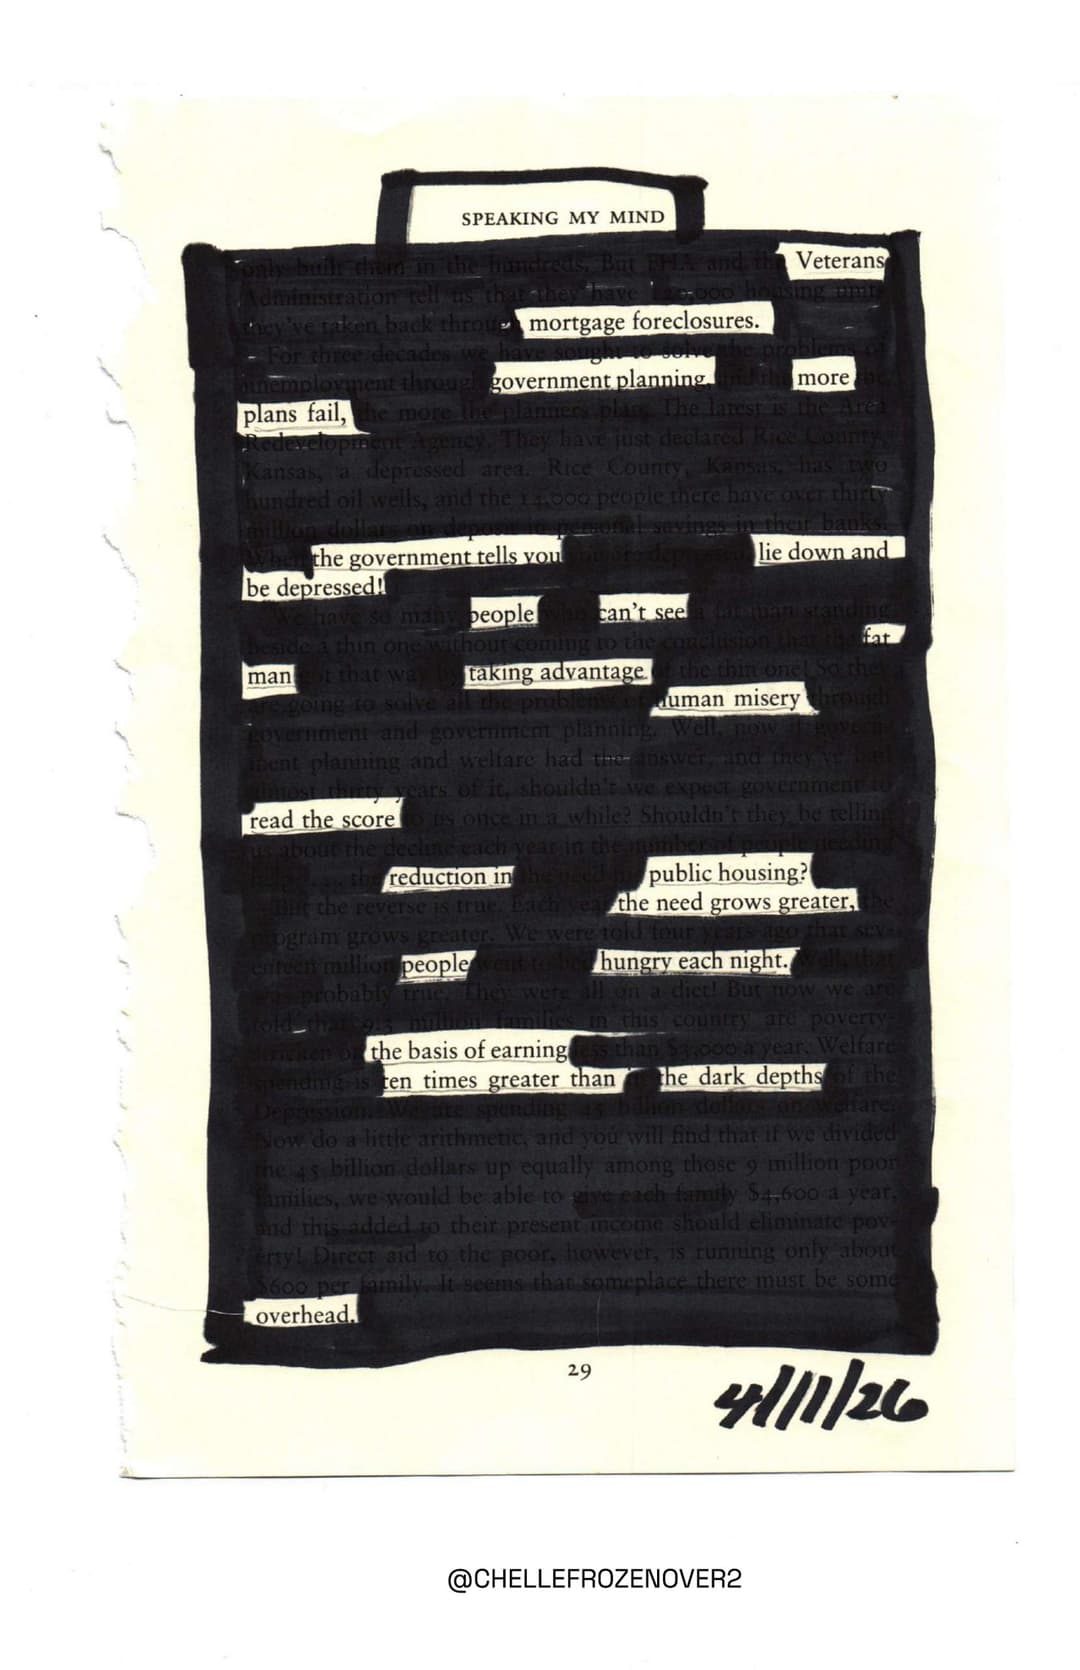 SPEAKING MY MIND
Veterans
mortgage foreclosures.
government planning, more
plans fail,
the government tells you lie down and
be depressed!
people can't see
fat
man taking advantage
human misery
read the score
reduction in public housing?
the need grows greater,
people hungry each night.
the basis of earning
ten times greater than the dark depths
overhead.
29
4/11/26
@CHELLEFROZENOVER2